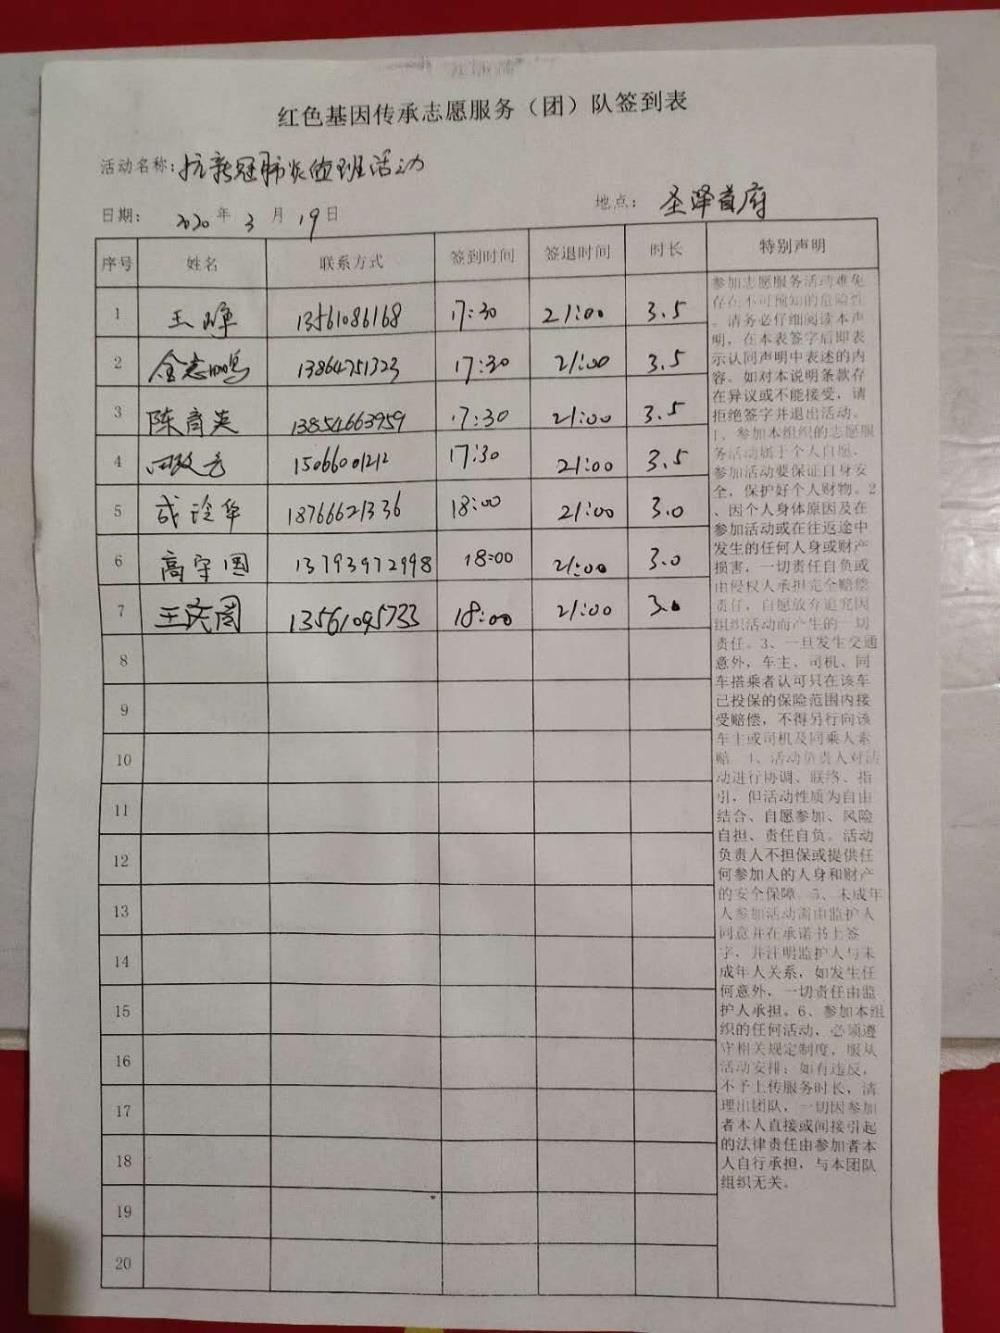 红色基因传承志愿服务（团）队签到表
活动名称：抗新冠肺炎值班活动
日期： 2020年 3 月 19日 地点： 圣泽首府
序号 姓名 联系方式 签到时间 签退时间 时长 特别声明
1 王峥 13561086168 17:30 21:00 3.5
2 金志鸣 13864751323 17:30 21:00 3.5
3 陈育英 13854663959 17:30 21:00 3.5
4 15066001212 17:30 21:00 3.5
5 成泠华 18766621336 18:00 21:00 3.0
6 高守国 13793972998 18:00 21:00 3.0
7 13561095733 18:00 21:00 3.0
8
9
10
11
12
13
14
15
16
17
18
19
20
参加志愿服务活动难免
存在不可预知的危险性
。请务必仔细阅读本声
明，在本表签字后即表
示认同声明中表述的内
容。如对本说明条款存
在异议或不能接受，请
拒绝签字并退出活动。
1、参加本组织的志愿服
务活动属于个人自愿，
参加活动要保证自身安
全，保护好个人财物。2
、因个人身体原因及在
参加活动或在往返途中
发生的任何人身或财产
损害，一切责任自负或
由侵权人承担完全赔偿
责任，自愿放弃追究因
组织活动而产生的一切
责任。3、一旦发生交通
意外，车主、司机、同
车搭乘者认可只在该车
已投保的保险范围内接
受赔偿，不得另行向该
车主或司机及同乘人索
赔。4、活动负责人对活
动进行协调、联络、指
引，但活动性质为自由
结合、自愿参加、风险
自担、责任自负。活动
负责人不担保或提供任
何参加人的人身和财产
的安全保障。5、未成年
人参加活动需由监护人
同意并在承诺书上签
字，并注明监护人与未
成年人关系，如发生任
何意外，一切责任由监
护人承担。6、参加本组
织的任何活动，必须遵
守相关规定制度，服从
活动安排；如有违反，
不予上传服务时长，清
理出团队，一切因参加
者本人直接或间接引起
的法律责任由参加者本
人自行承担，与本团队
组织无关。